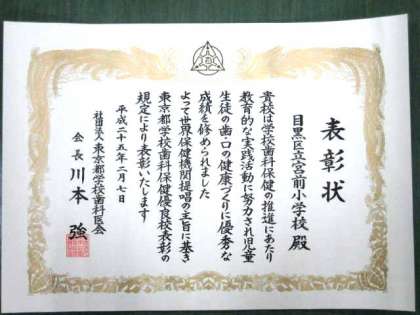 表彰状
目黒区立宮前小学校 殿
貴校は学校歯科保健の推進にあたり
教育的な実践活動に努力され児童
生徒の歯・口の健康づくりに優秀な
成績を修められました
よって世界保健機関提唱の主旨に基き
東京都学校歯科保健優良校表彰の
規定により表彰いたします
平成二十五年二月七日
社団法人 東京都学校歯科医会
会長 川本 強